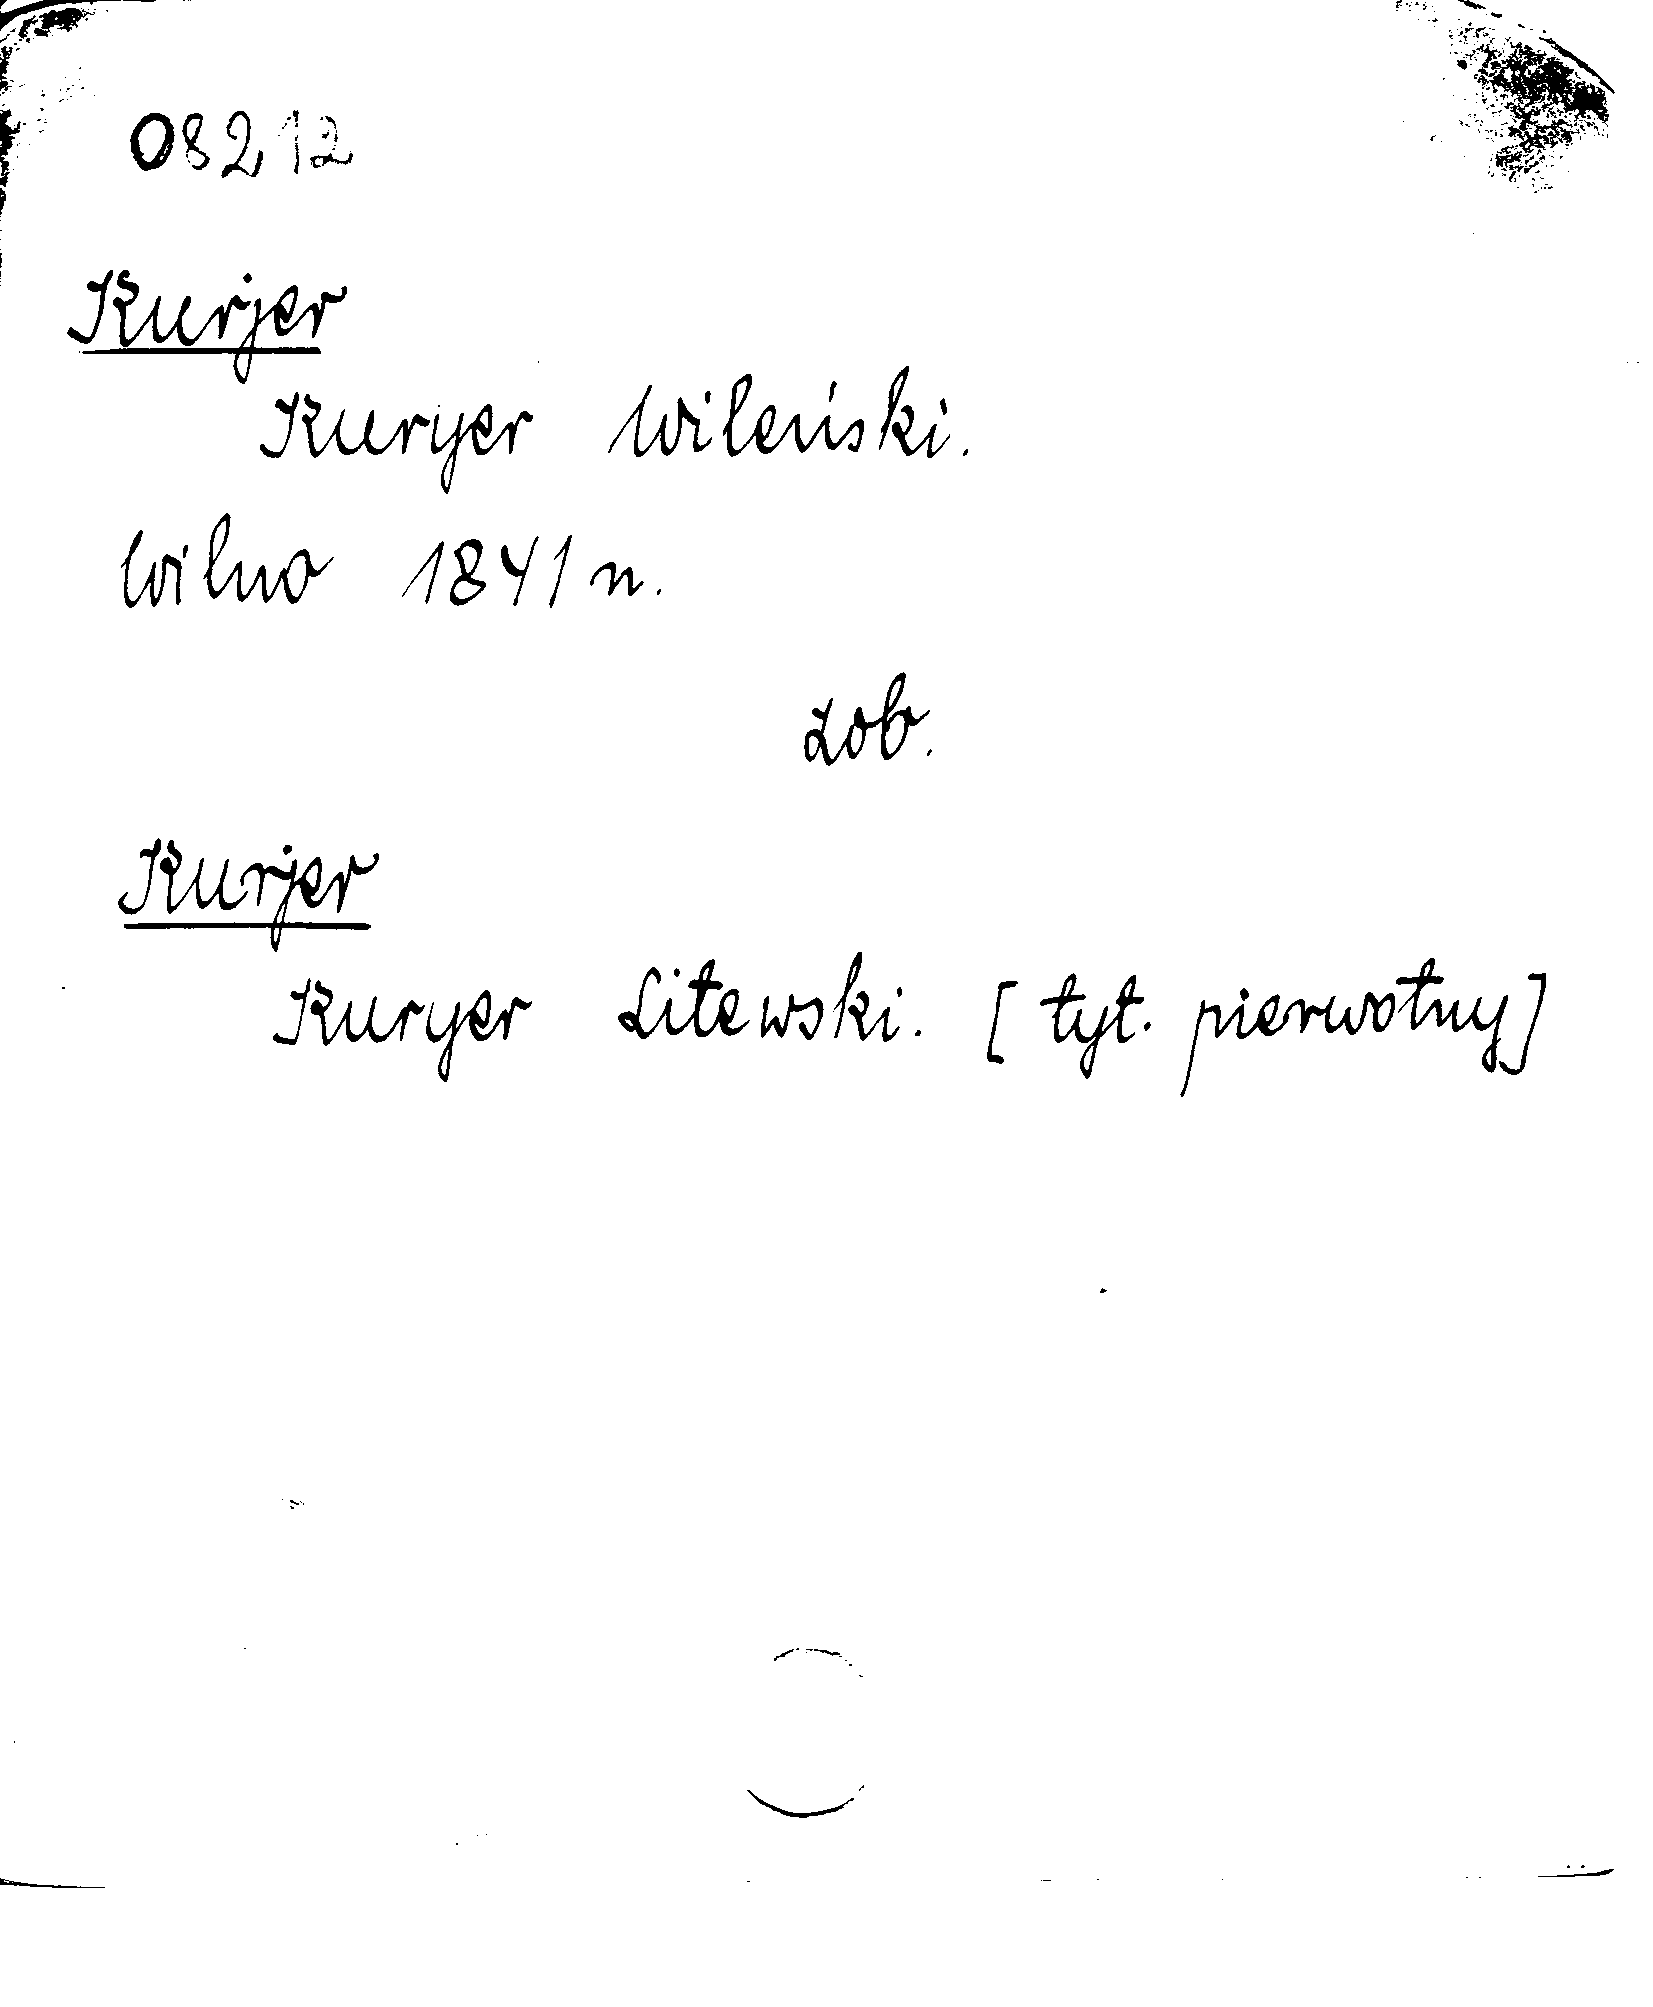 08212
Kurjer
Kuryer Wileński.
Wilno 1841 n.
zob.
Kurjer
Kuryer Litewski. [tyt. pierwotny]